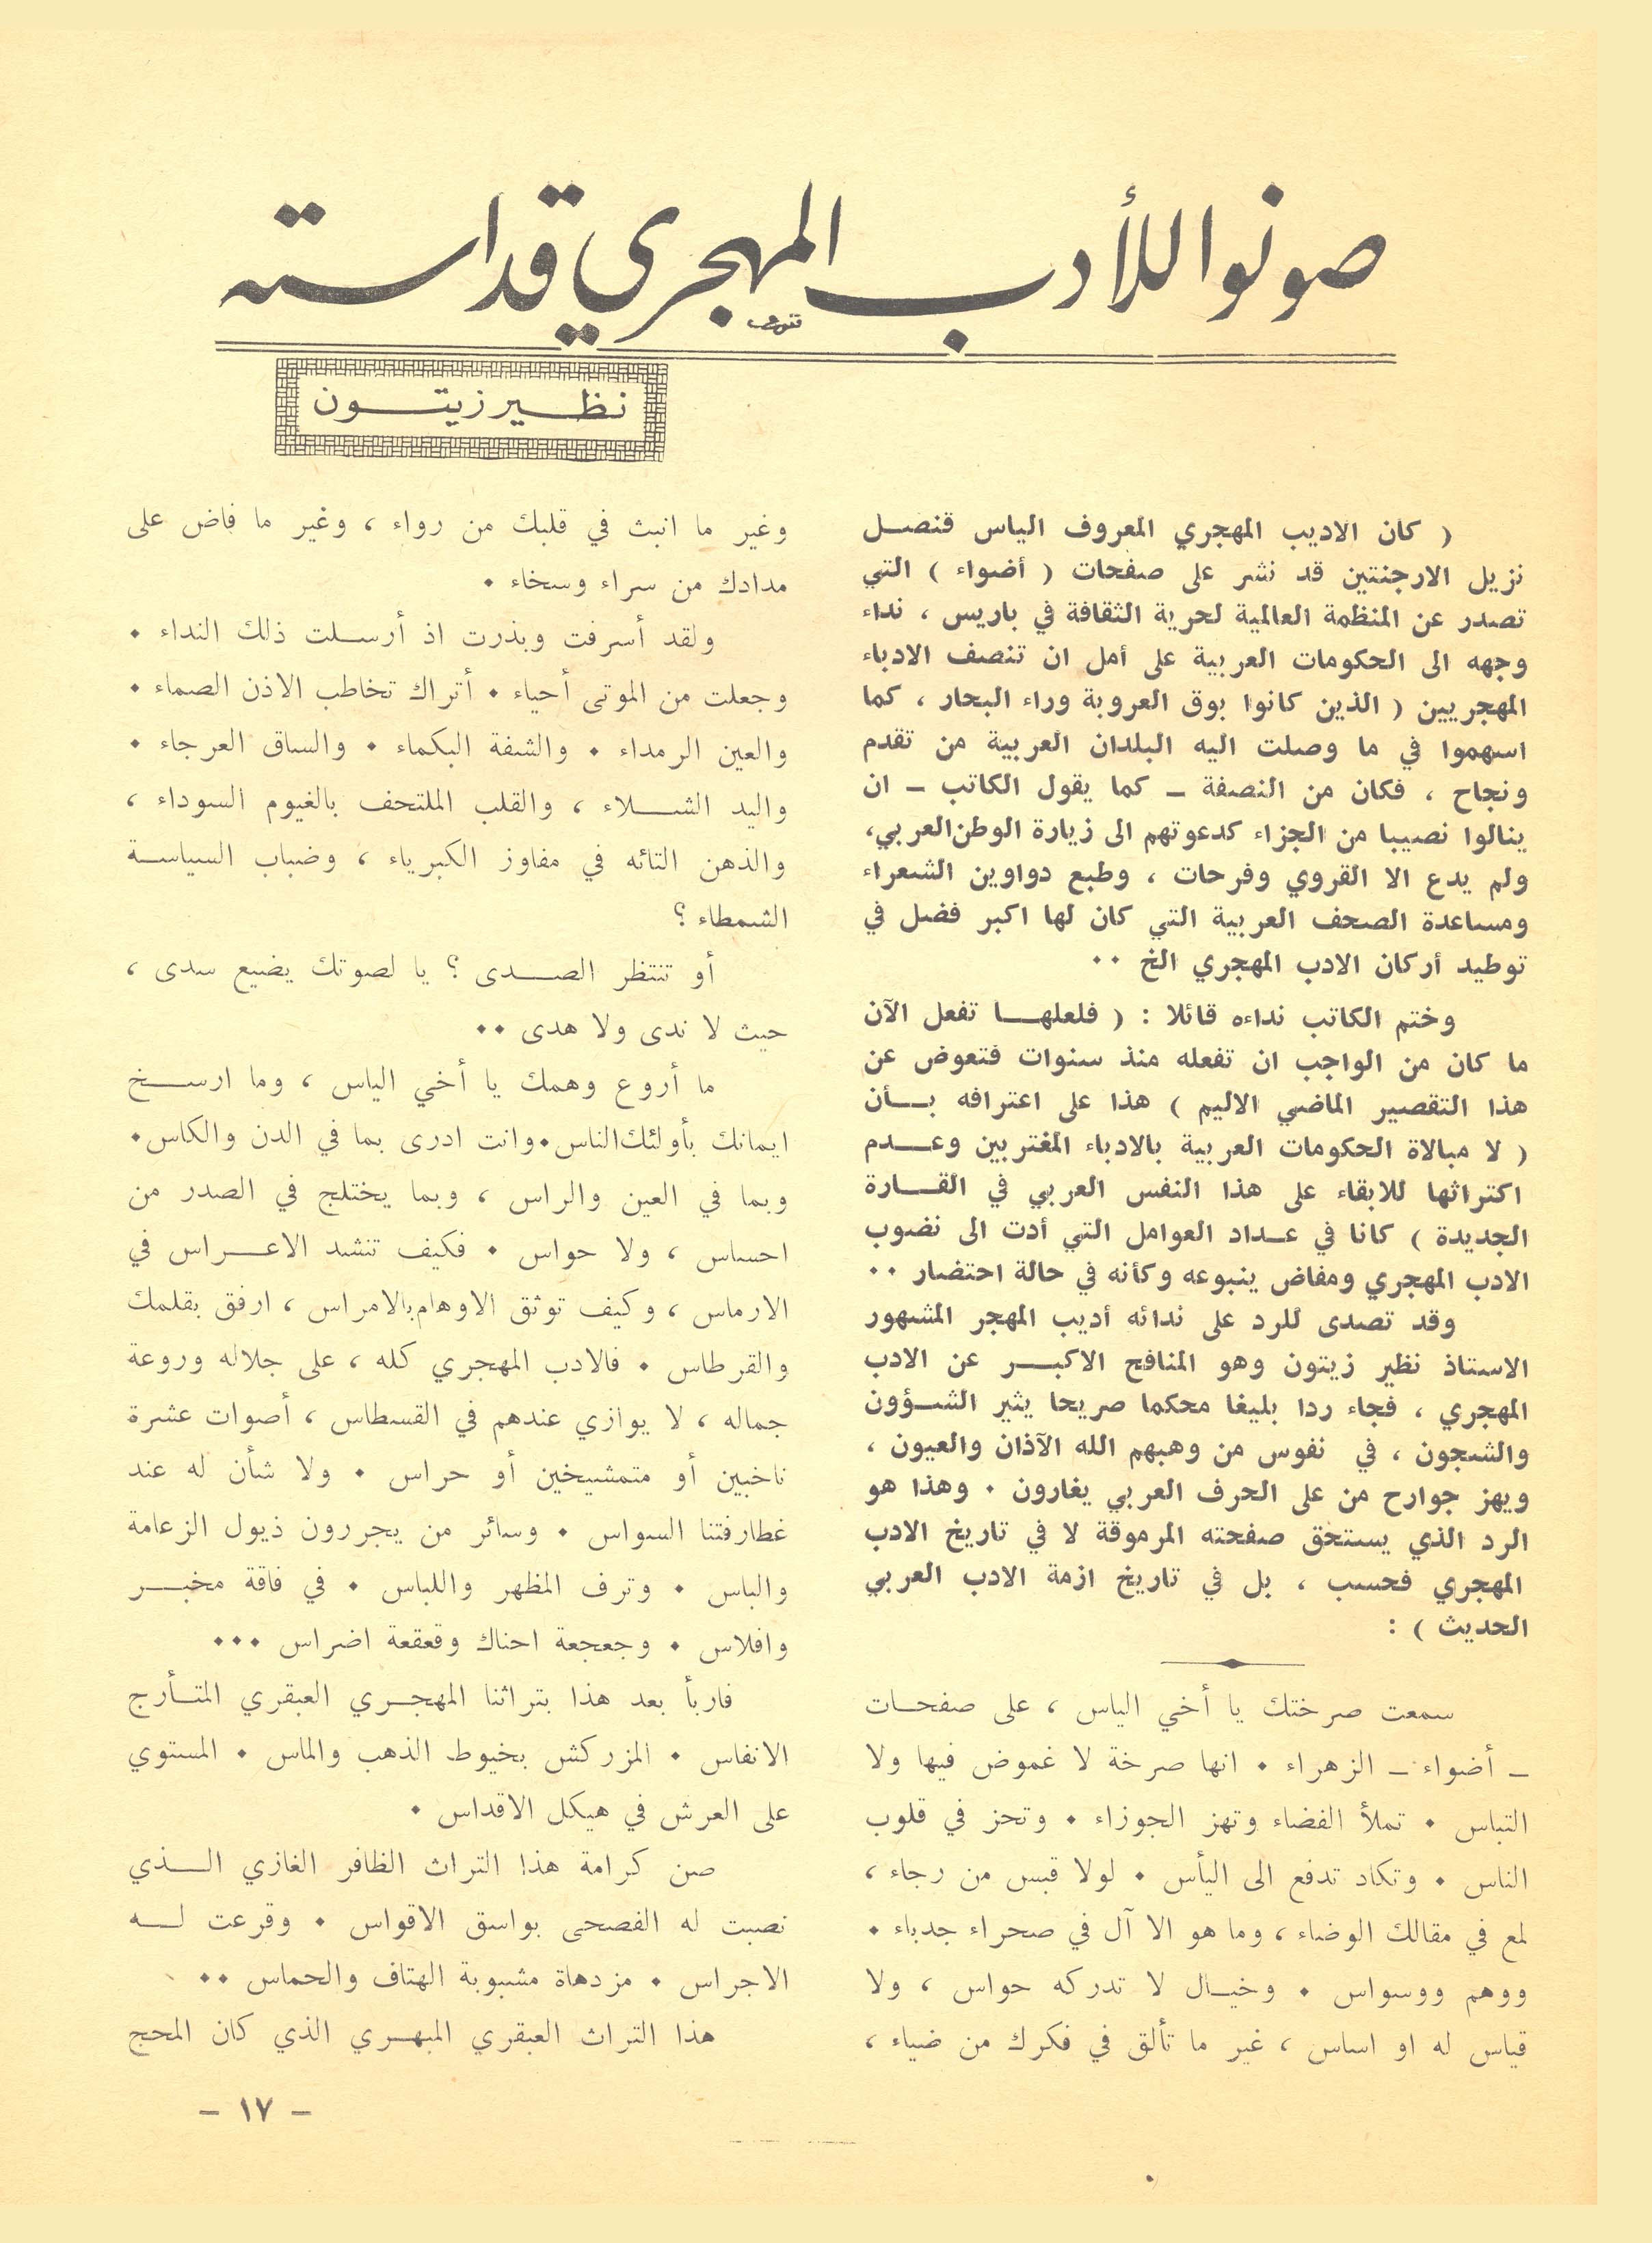 صونوا للأدب المهجري قداسته
نظير زيتون
( كان الاديب المهجري المعروف الياس قنصل
نزيل الارجنتين قد نشر على صفحات ( أضواء ) التي
تصدر عن المنظمة العالمية لحرية الثقافة في باريس ، نداء
وجهه الى الحكومات العربية على أمل ان تنصف الادباء
المهجريين ( الذين كانوا بوق العروبة وراء البحار ، كما
اسهموا في ما وصلت اليه البلدان العربية من تقدم
ونجاح ، فكان من النصفة ـ كما يقول الكاتب ـ ان
ينالوا نصيبا من الجزاء كدعوتهم الى زيارة الوطن العربي،
ولم يدع الا القروي وفرحات ، وطبع دواوين الشعراء
ومساعدة الصحف العربية التي كان لها اكبر فضل في
توطيد أركان الادب المهجري الخ ٠٠
وختم الكاتب نداءه قائلا : ( فلعلهـا تفعل الآن
ما كان من الواجب ان تفعله منذ سنوات فتعوض عن
هذا التقصير الماضي الاليم ) هذا على اعترافه بـأن
( لا مبالاة الحكومات العربية بالادباء المغتربين وعـدم
اكتراثها للابقاء على هذا النفس العربي في القـارة
الجديدة ) كانا في عـداد العوامل التي أدت الى نضوب
الادب المهجري ومفاض ينبوعه وكأنه في حالة احتضار ٠٠
وقد تصدى للرد على ندائه أديب المهجر المشهور
الاستاذ نظير زيتون وهو المنافح الاكبـر عن الادب
المهجري ، فجاء ردا بليغا محكما صريحا يثير الشـؤون
والشجون ، في نفوس من وهبهم الله الآذان والعيون ،
ويهز جوارح من على الحرف العربي يغارون ٠ وهذا هو
الرد الذي يستحق صفحته المرموقة لا في تاريخ الادب
المهجري فحسب ، بل في تاريخ ازمة الادب العربي
الحديث ) :
سمعت صرختك يا أخي الياس ، على صفحـات
ـ أضواء ـ الزهراء ٠ انها صرخة لا غموض فيها ولا
التباس ٠ تملأ الفضاء وتهز الجوزاء ٠ وتحز في قلوب
الناس ٠ وتكاد تدفع الى اليأس ٠ لولا قبس من رجاء ،
لمع في مقالك الوضاء ، وما هو الا آل في صحراء جدباء ٠
ووهم ووسواس ٠ وخيـال لا تدركه حواس ، ولا
قياس له او اساس ، غير ما تألق في فكرك من ضياء ،
وغير ما انبث في قلبك من رواء ، وغير ما فاض على
مدادك من سراء وسخاء ٠
ولقد أسرفت وبذرت اذ أرسـلت ذلك النداء ٠
وجعلت من الموتى أحياء ٠ أتراك تخاطب الاذن الصماء ٠
والعين الرمداء ٠ والشفة البكماء ٠ والساق العرجاء ٠
واليد الشـلاء ، والقلب الملتحف بالغيوم السوداء ،
والذهن التائه في مفاوز الكبرياء ، وضباب السياسـة
الشمطاء ؟
أو تنتظر الصـدى ؟ يا لصوتك يضيع سدى ،
حيث لا ندى ولا هدى ٠٠
ما أروع وهمك يا أخي الياس ، وما ارسـخ
ايمانك بأولئك الناس٠وانت ادرى بما في الدن والكاس٠
وبما في العين والراس ، وبما يختلج في الصدر من
احساس ، ولا حواس ٠ فكيف تنشد الاعـراس في
الارماس ، وكيف توثق الاوهام بالامراس ، ارفق بقلمك
والقرطاس ٠ فالادب المهجري كله ، على جلاله وروعة
جماله ، لا يوازي عندهم في القسطاس ، أصوات عشرة
ناخبين أو متمشيخين أو حراس ٠ ولا شأن له عند
غطارفتنا السواس ٠ وسائر من يجررون ذيول الزعامة
والباس ٠ وترف المظهر واللباس ٠ في فاقة مخبـر
وافلاس ٠ وجعجعة احناك وقعقعة اضراس ٠٠٠
فاربأ بعد هذا بتراثنا المهجـري العبقري المتـأرج
الانفاس ٠ المزركش بخيوط الذهب والماس ٠ المستوي
على العرش في هيكل الاقداس ٠
صن كرامة هذا التراث الظافر الغازي الـذي
نصبت له الفصحى بواسق الاقواس ٠ وقرعت لـه
الاجراس ٠ مزدهاة مشبوبة الهتاف والحماس ٠٠
هذا التراث العبقري المبهـري الذي كان المحج
– ١٧ –